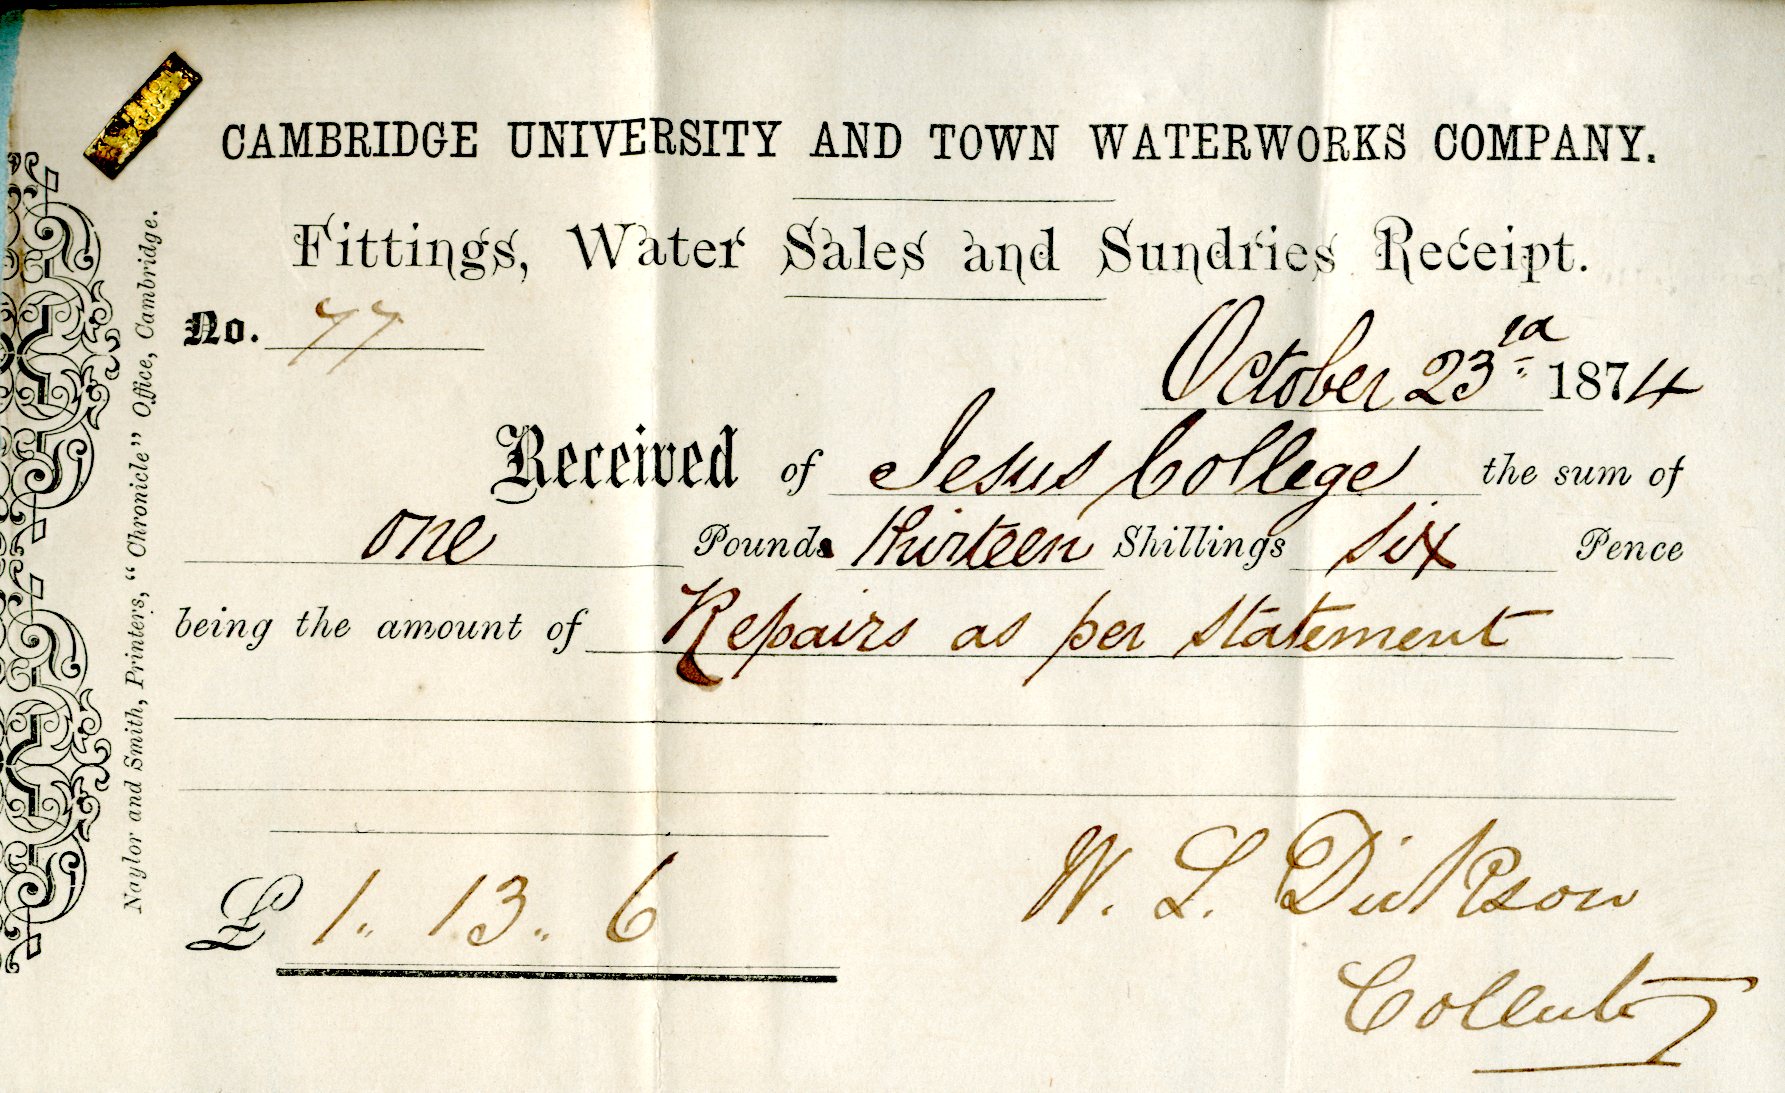 CAMBRIDGE UNIVERSITY AND TOWN WATERWORKS COMPANY.
Fittings, Water Sales and Sundries Receipt.
No. 77
October 23rd 1874
Received of Jesus College the sum of
one Pounds thirteen Shillings six Pence
being the amount of Repairs as per Statement
£ 1 .. 13 .. 6
W. L. Dickson
Collector
Naylor and Smith, Printers, "Chronicle" Office, Cambridge.